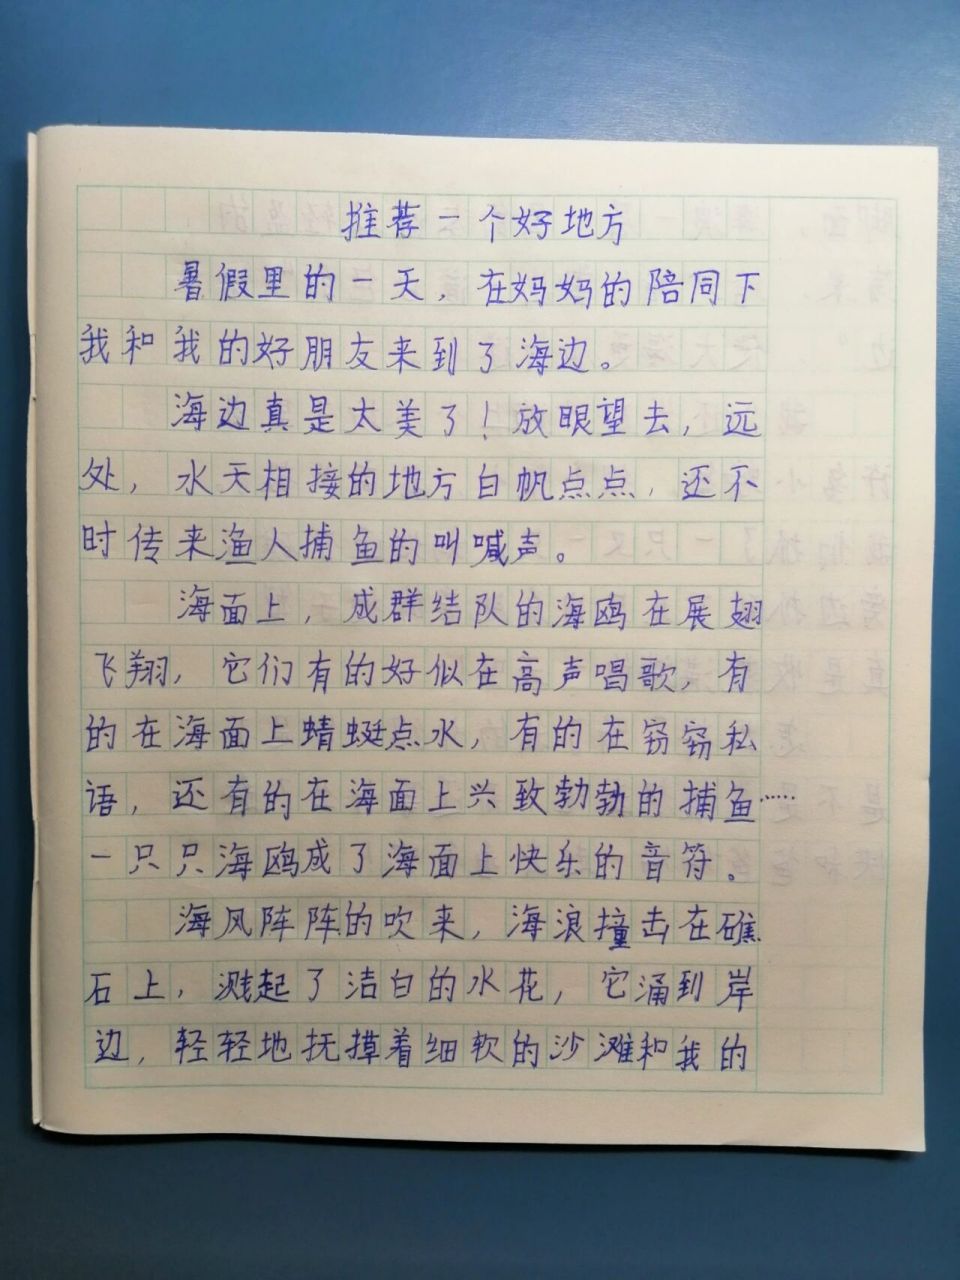 推荐一个好地方
暑假里的一天，在妈妈的陪同下
我和我的好朋友来到了海边。
海边真是太美了！放眼望去，远
处，水天相接的地方白帆点点，还不
时传来渔人捕鱼的叫喊声。
海面上，成群结队的海鸥在展翅
飞翔，它们有的好似在高声唱歌，有
的在海面上蜻蜓点水，有的在窃窃私
语，还有的在海面上兴致勃勃的捕鱼……
一只只海鸥成了海面上快乐的音符。
海风阵阵的吹来，海浪撞击在礁
石上，溅起了洁白的水花，它涌到岸
边，轻轻地抚摸着细软的沙滩和我的